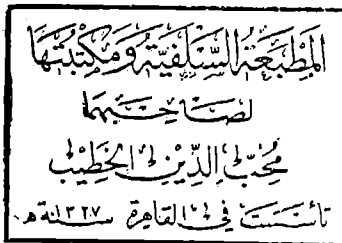 المطبعة السلفية ومكتبتها
لصاحبها
محب الدين الخطيب
تأسست في القاهرة سنة ١٣٢٧ هـ